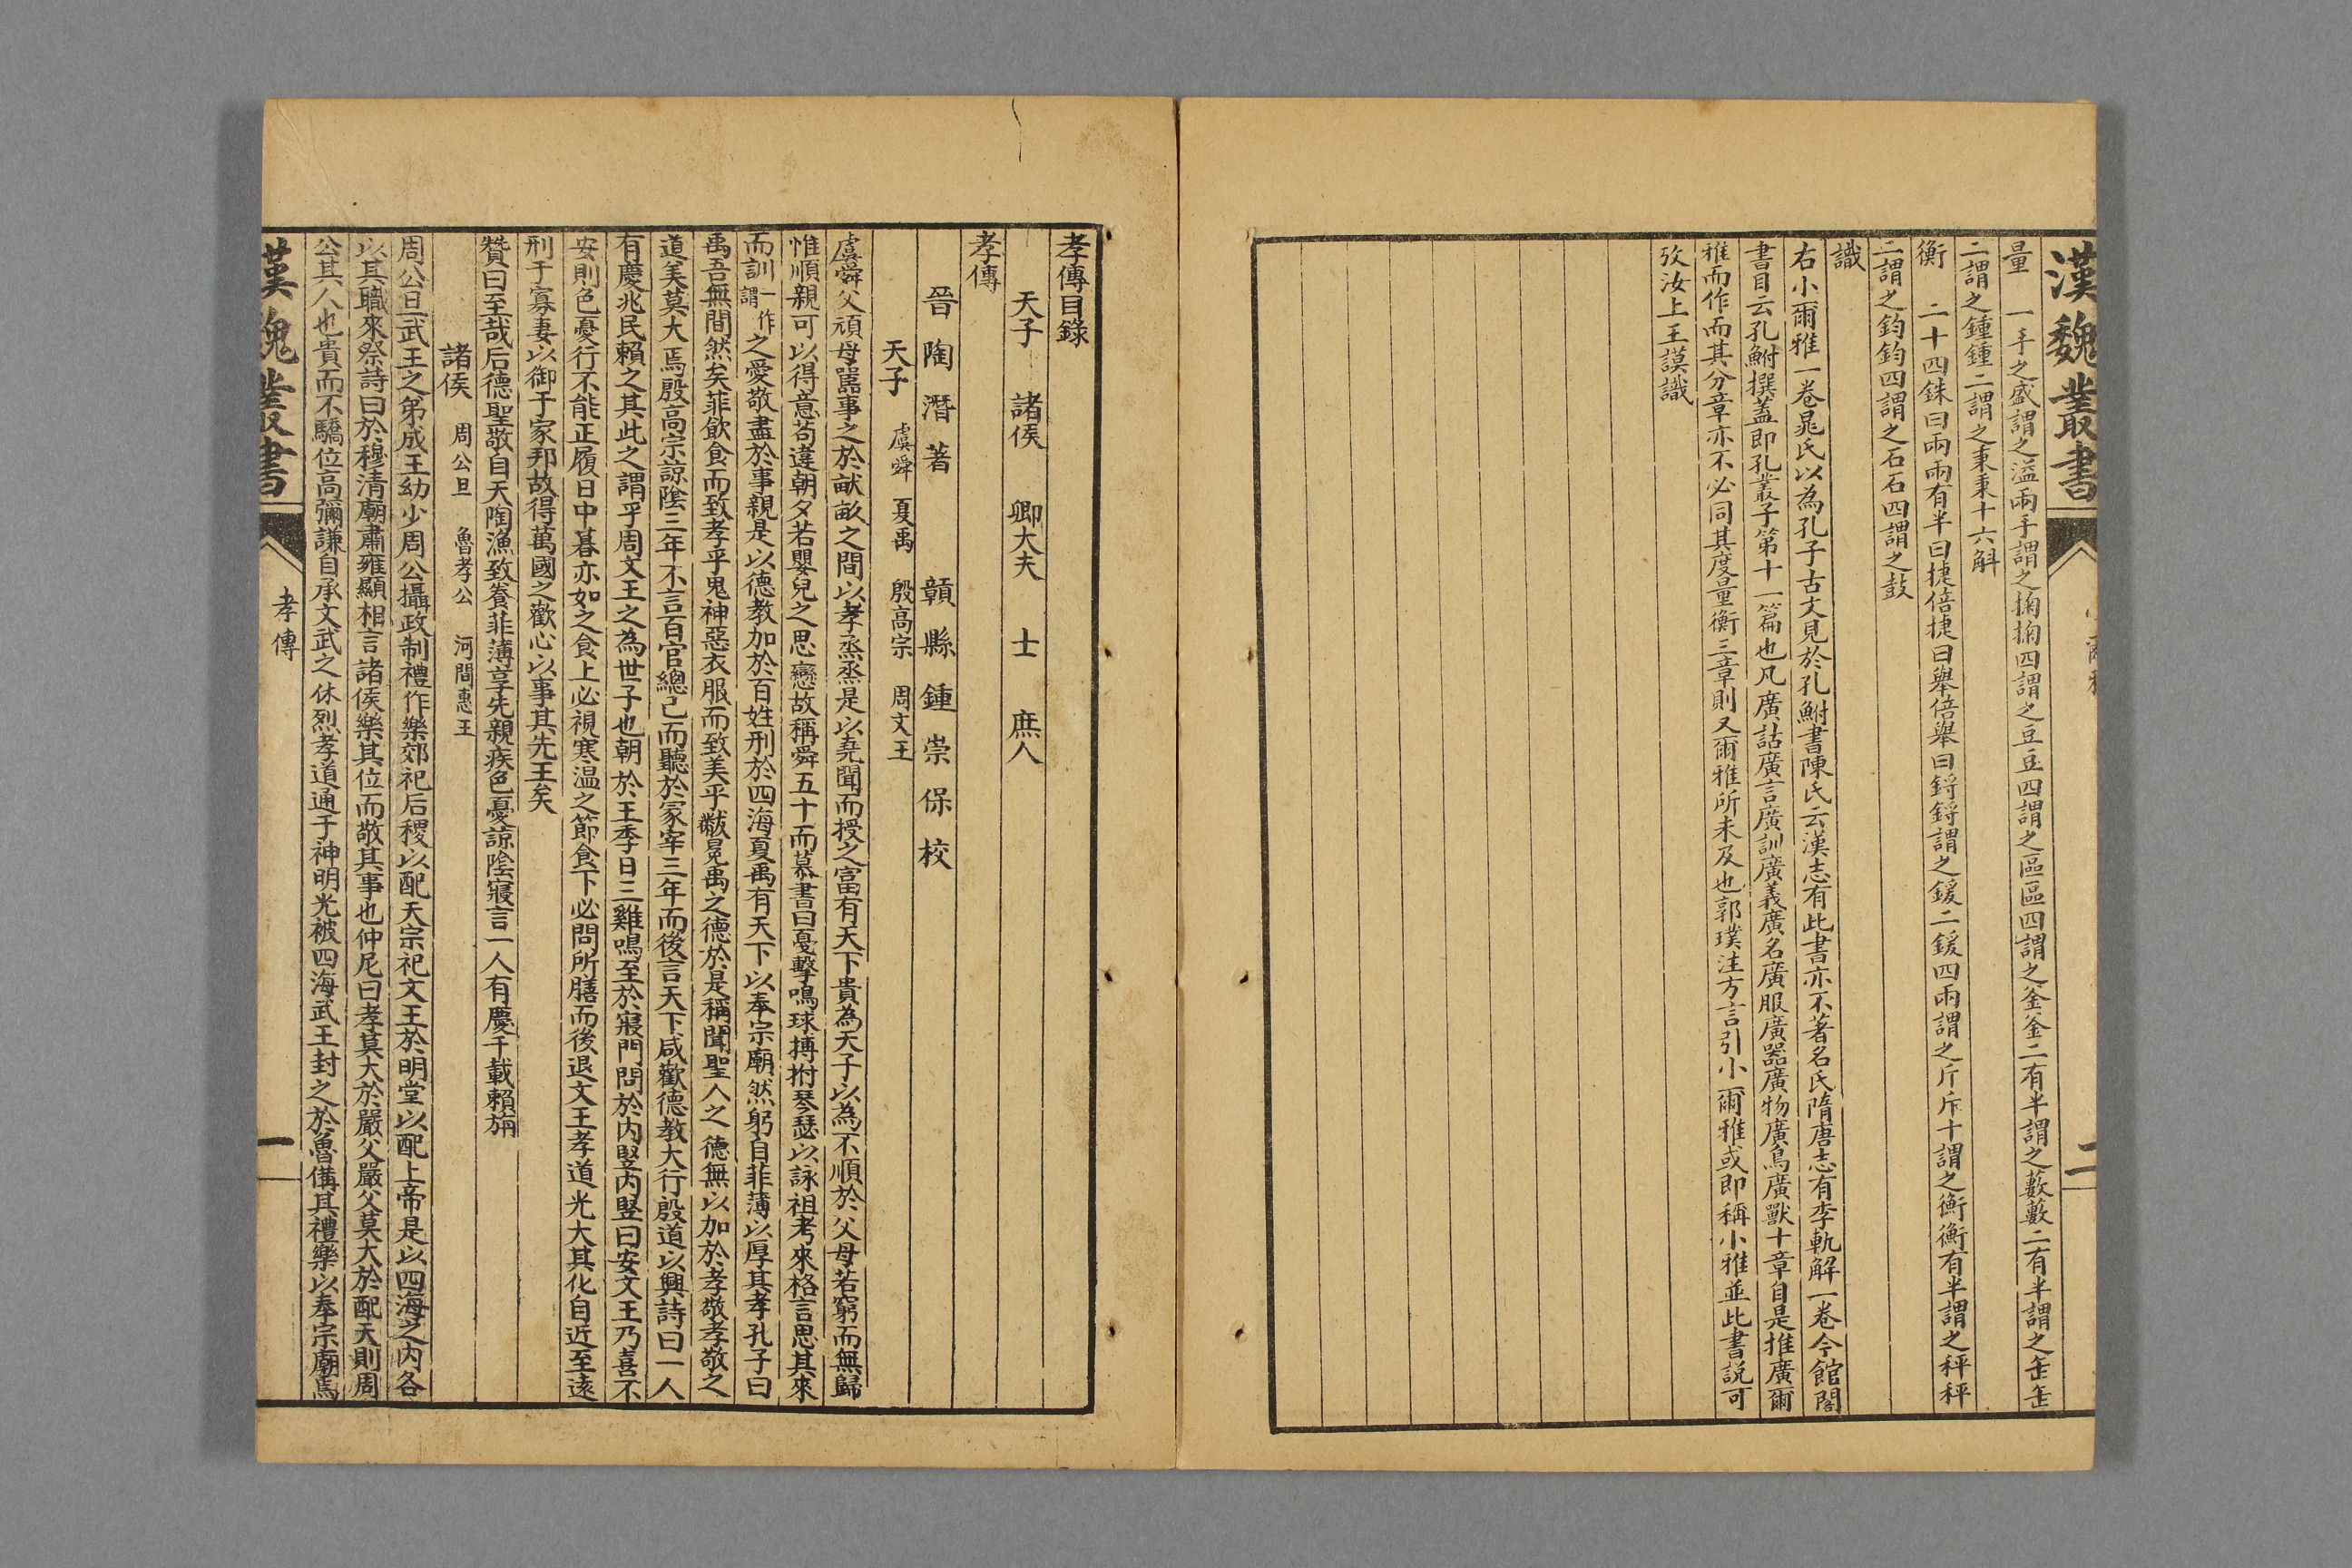 漢魏叢書
二
量 一手之盛謂之溢兩手謂之掬掬四謂之豆豆四謂之區區四謂之釜釜二有半謂之藪藪二有半謂之缶缶
二謂之鍾鍾二謂之秉秉十六斛
衡 二十四銖曰兩兩有半曰捷倍捷曰舉倍舉曰鋝鋝謂之鍰二鍰四兩謂之斤斤十謂之衡衡有半謂之秤秤
二謂之鈞鈞四謂之石石四謂之鼓
識
右小爾雅一卷晁氏以為孔子古文見於孔鮒書陳氏云漢志有此書亦不著名氏隋唐志有李軌解一卷今館閣
書目云孔鮒撰蓋即孔叢子第十一篇也凡廣詁廣言廣訓廣義廣名廣服廣器廣物廣鳥廣獸十章自是推廣爾
雅而作而其分章亦不必同其度量衡三章則又爾雅所未及也郭璞注方言引小爾雅或即稱小雅並此書說可
攷汝上王謨識
孝傳目錄
天子 諸侯 卿大夫 士 庶人
孝傳
晉陶潛著 贛縣鍾崇保校
天子 虞舜 夏禹 殷高宗 周文王
虞舜父頑母嚚事之於畎畝之間以孝烝烝是以堯聞而授之富有天下貴為天子以為不順於父母若窮而無歸
惟順親可以得意苟違朝夕若嬰兒之思戀故稱舜五十而慕書曰戛擊鳴球搏拊琴瑟以詠祖考來格言思其來
而訓一作謂之愛敬盡於事親是以德教加於百姓刑於四海夏禹有天下以奉宗廟然躬自菲薄以厚其孝孔子曰
禹吾無間然矣菲飲食而致孝乎鬼神惡衣服而致美乎黻冕禹之德於是稱聞聖人之德無以加於孝敬孝敬之
道美莫大焉殷高宗諒陰三年不言百官總己而聽於冢宰三年而後言天下咸歡德教大行殷道以興詩曰一人
有慶兆民賴之其此之謂乎周文王之為世子也朝於王季日三雞鳴至於寢門問於內豎內豎曰安文王乃喜不
安則色憂行不能正履日中暮亦如之食上必視寒温之節食下必問所膳而後退文王孝道光大其化自近至遠
刑于寡妻以御于家邦故得萬國之歡心以事其先王矣
贊曰至哉后德聖敬自天陶漁致養菲薄享先親疾色憂諒陰寢言一人有慶千載賴旃
諸侯 周公旦 魯孝公 河間惠王
周公旦武王之弟成王幼少周公攝政制禮作樂郊祀后稷以配天宗祀文王於明堂以配上帝是以四海之内各
以其職來祭詩曰於穆清廟肅雍顯相言諸侯樂其位而敬其事也仲尼曰孝莫大於嚴父嚴父莫大於配天則周
公其人也貴而不驕位高彌謙自承文武之休烈孝道通于神明光被四海武王封之於魯備其禮樂以奉宗廟焉
漢魏叢書
孝傳
一